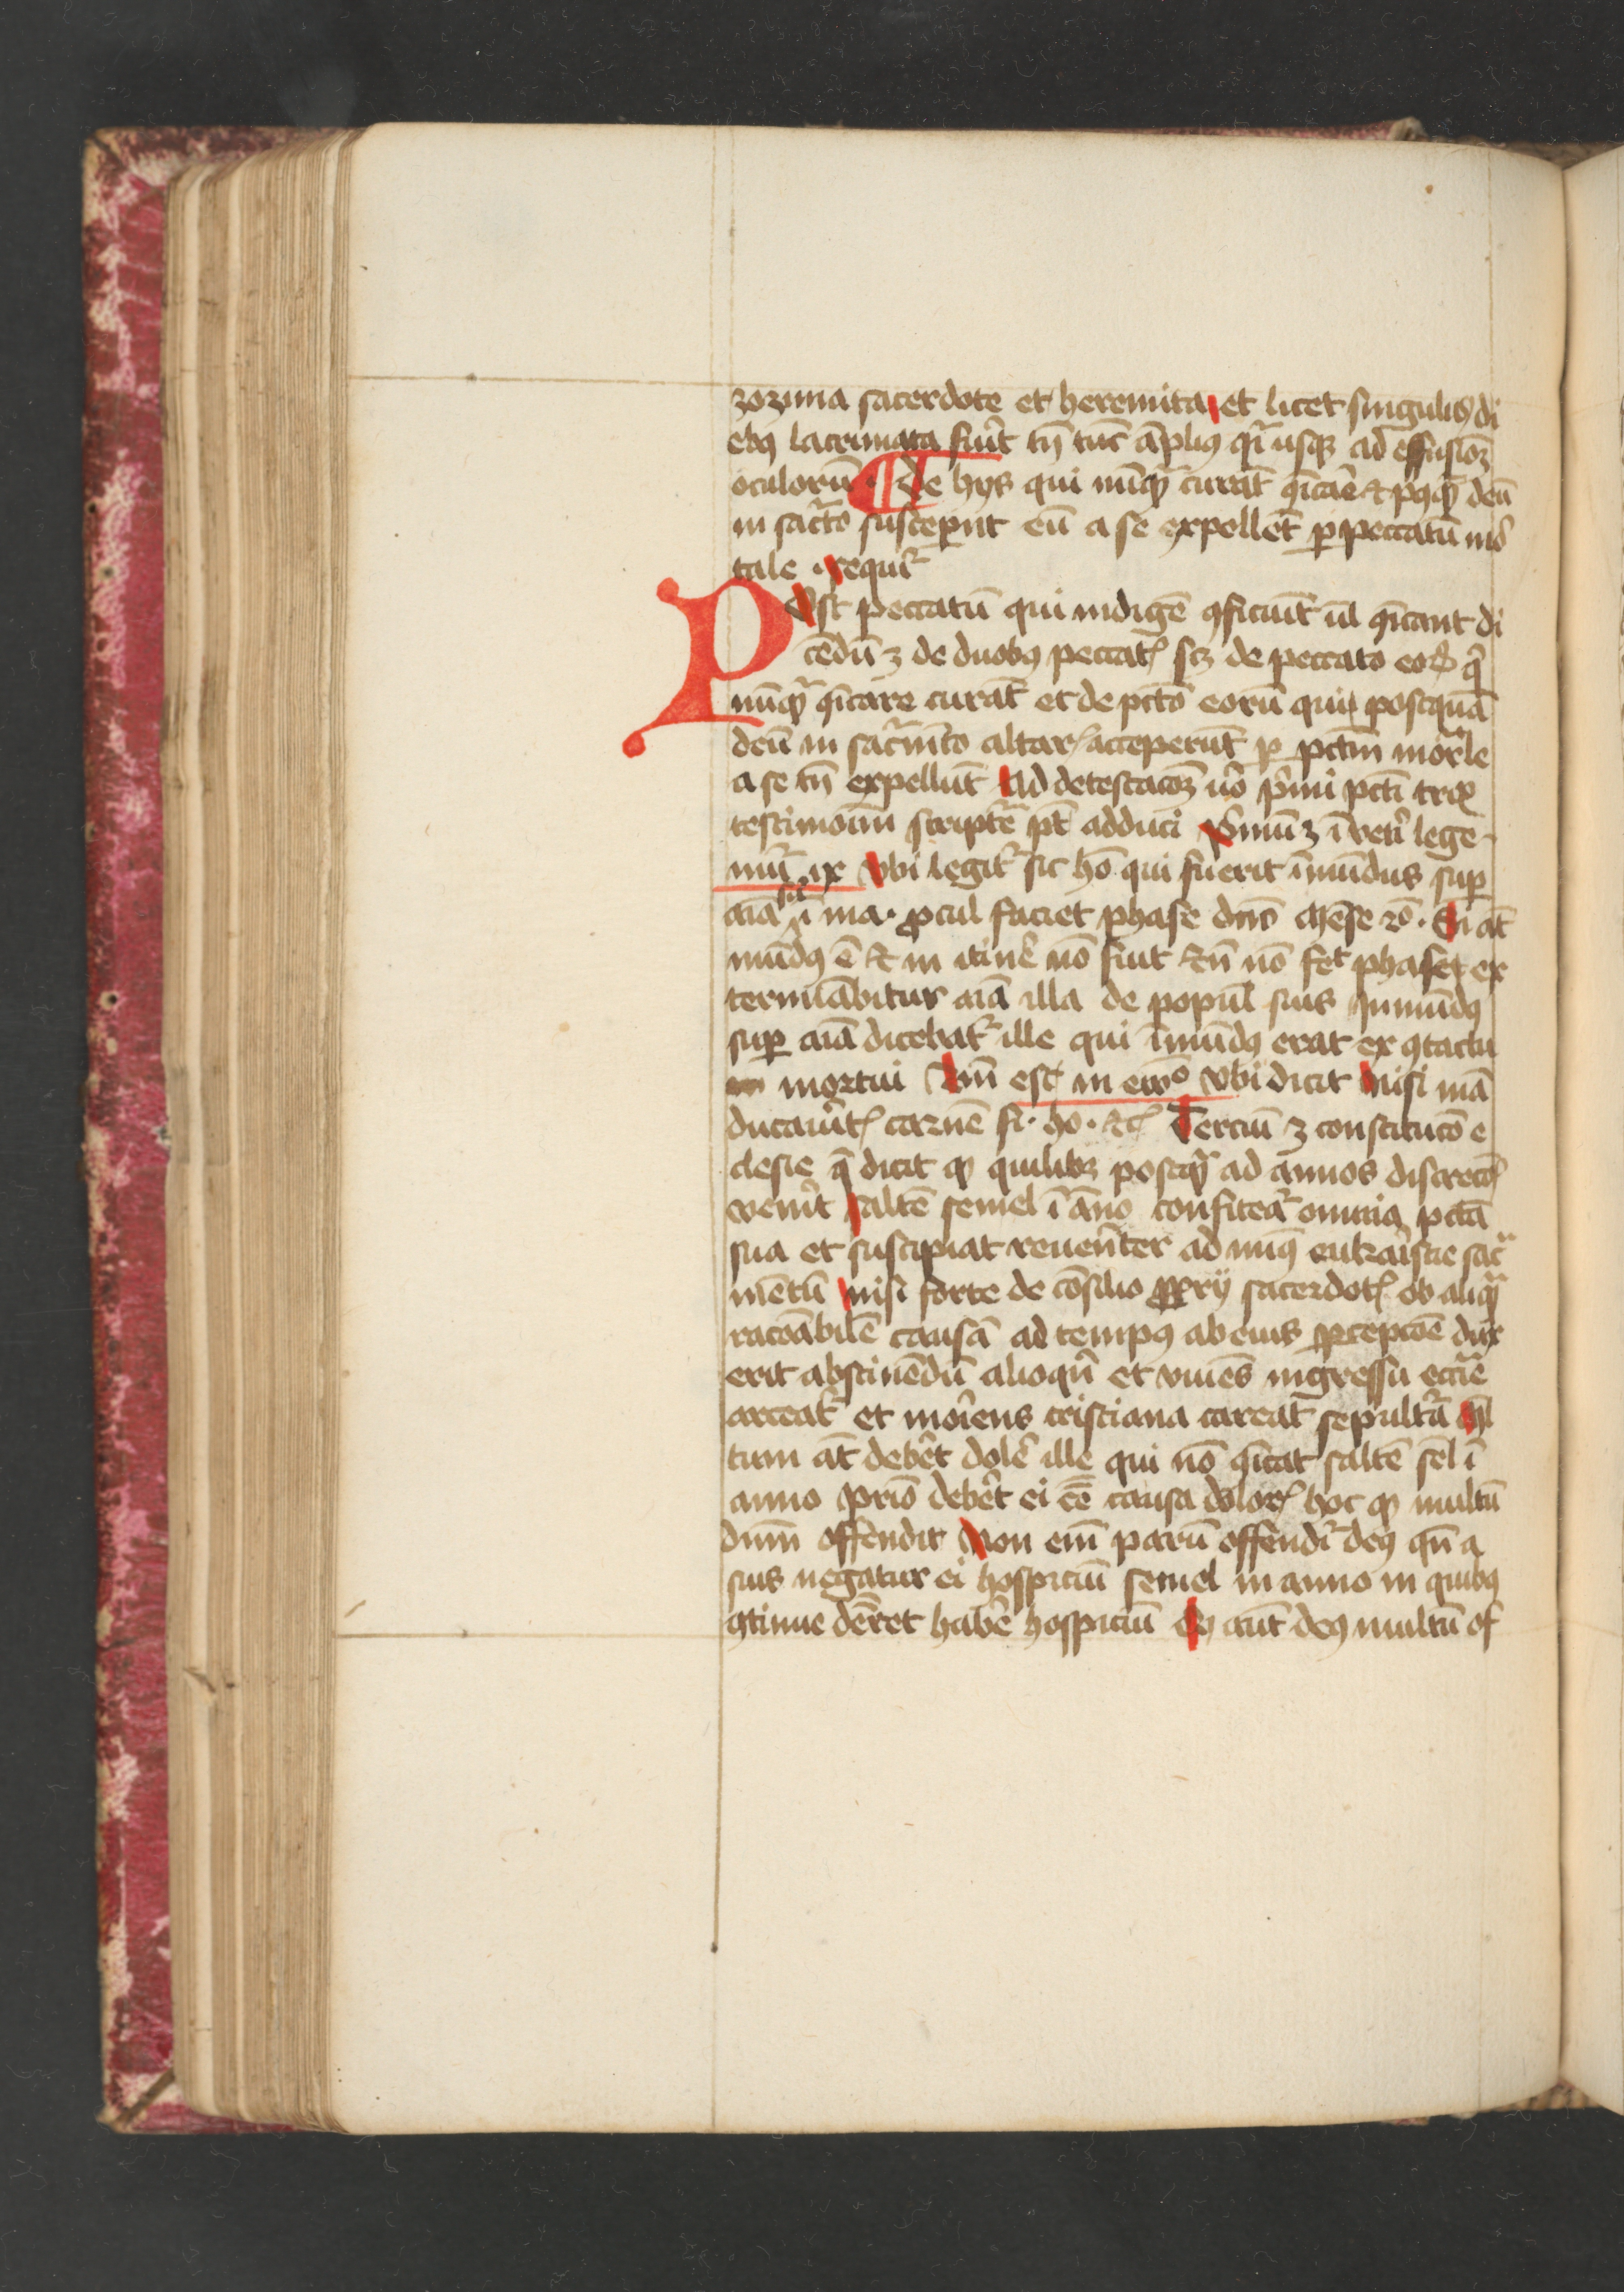 zozima sacerdote et heremita et licet singulis di
ebꝰ lacrimata fuit̃ tñ tūc āpliꝰ q̄i usqꝫ ad effusioꝫ
oculorū ¶ De hys qui nūqͣ curāt ꝯ̄icare ⁊ pꝰqͣ deū
in sacr̃o susceperūt eū a se expellēt ꝑ peccatū mor̃
tale . requir̃
Post peccatū qui indigne ꝯficiūt ul̄ ꝯ̄icant di
cēdū ꝫ de duobꝰ peccat̄ sꝫ de peccato eoꝝ q̄
nūqͣ ꝯ̄icare curāt et de pctō eorū qui postquā
deū in sacͣmēto altar̄ acceperūt ꝑ pctm̄ mor̄le
a se tn̄ expellūt Ad detestacōꝫ ũo p̄mi pcti trͣ
testimoniū scriptͤ pt̄ adduci P̄mū ꝫ ī veti lege
nūi ix Vbi legit̃ sic hō qui fuerit īmūdus suꝑ
aīa siͨ ī uia . ꝓcul faciet phase dnō mēse ẜō . Si āt
mūdꝰ ē ⁊ in itin̄e nō fuit ⁊ tn̄ nō fec̄ phase ex
terminabitur aīa illa de popul̄ suis Inmūdꝰ
suꝑ aīa dicebat̃ ille qui īmūdꝰ erat ex ꝯtactu
mortui Am̄ est in ewᵒ Vbi dicit Nisi mā
ducauit̄ carnē fi . ho . ⁊c̄ Terciū ꝫ constitucō e
clesie q̄ dicit ꝙ quilibꝫ postqͣ ad annos discrecō
venit̃ saltē semel ī āno confiteat̃ omnia pctā
sua et suscipiat reuerēter ad minꝰ eukaristie sacͣ
mētū Nisi forte de cōsilio ꝓprii sacerdot̄ ob aliqͣ
racōabilē causā ad tempꝰ ab eius ꝑcepcōe dux
erit abstinēdū alioqn̄ et viuēs ingressu eccīe
arceat̃ et moriens cristiana careat sepultͣ Ml̄
tum āt debet dolē ille qui nō ꝯ̄icat saltē sel̄ ī
anno Prīo debet ei eē causa dolor̄ hoc ꝙ multū
dnm̄ offendit Non em̄ parū offendit̃ deꝰ qn̄ a
suis negatur ei hospiciū semel in anno in quibꝰ
ꝯtinue deret habē hospiciū Qꝰ aūt deꝰ multū of